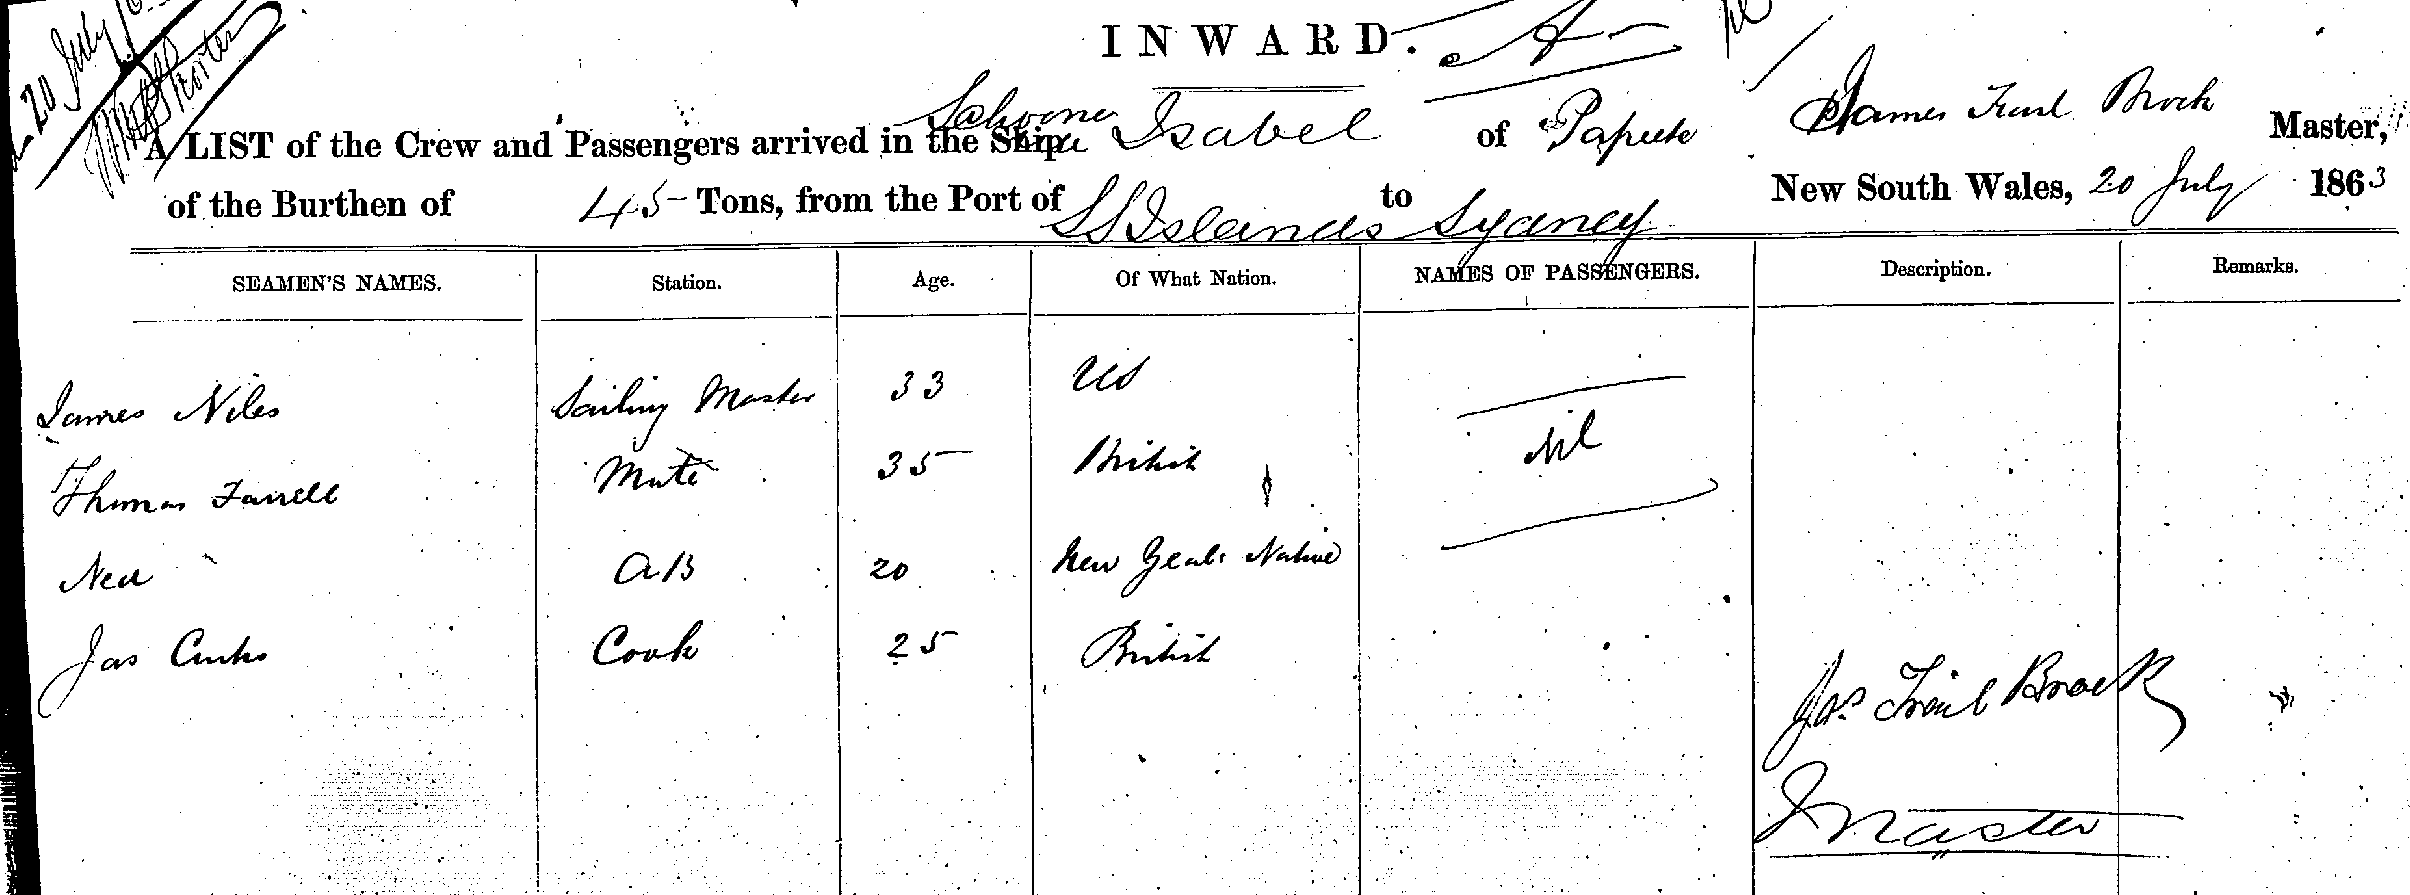 20 July
INWARD. A
A LIST of the Crew and Passengers arrived in the Ship Schooner Isabel of Papeete James Trail Brock Master,
of the Burthen of 45 Tons, from the Port of SS Islands to Sydney New South Wales, 20 July 1863
SEAMEN'S NAMES. Station. Age. Of What Nation. NAMES OF PASSENGERS. Description. Remarks.
James Niles Sailing Master 33 US
Nil
Thomas Farrell Mate 35 British
Ned AB 20 New Zeald Native
Jas Curtis Cook 25 British
Jas Trail Brock
Master